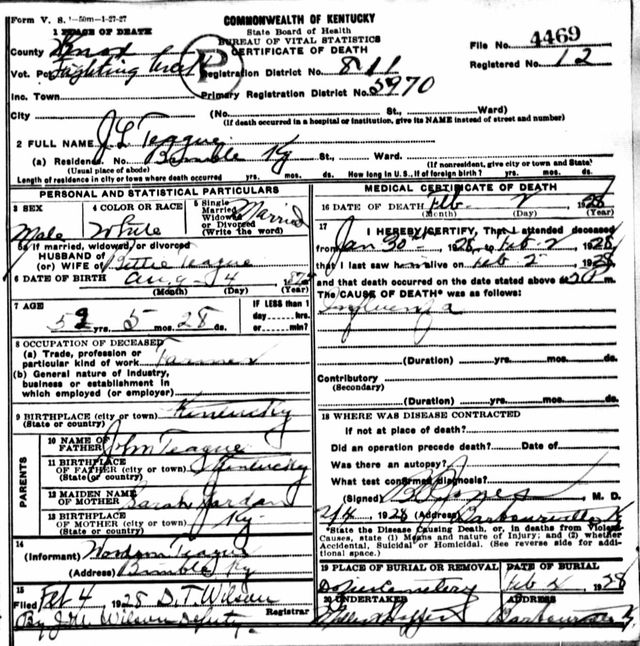 Form V. S. 1-50m-1-27-27
COMMONWEALTH OF KENTUCKY
State Board of Health
BUREAU OF VITAL STATISTICS
CERTIFICATE OF DEATH
1 PLACE OF DEATH
County Knox
Vot. Pct. Fighting Creek
P
File No. 4469
Registered No. 12
Registration District No. 811
Inc. Town
Primary Registration District No. 5970
City (No. St., Ward)
(If death occurred in a hospital or institution, give its NAME instead of street and number)
2 FULL NAME J L Teague
(a) Residence. No. Bimble Ky St., Ward.
(Usual place of abode) (If nonresident, give city or town and State)
Length of residence in city or town where death occurred yrs. mos. ds. How long in U. S., if of foreign birth? yrs. mos. ds.
PERSONAL AND STATISTICAL PARTICULARS
3 SEX Male
4 COLOR OR RACE White
5 Single Married Widowed or Divorced (Write the word) Married
5a If married, widowed, or divorced
HUSBAND of
(or) WIFE of Bettie Teague
6 DATE OF BIRTH Aug 4
(Month) (Day) (Year)
7 AGE
5 mos. 28 ds.
IF LESS than 1 day----hrs. or----min?
8 OCCUPATION OF DECEASED
(a) Trade, profession or
particular kind of work Farmer
(b) General nature of Industry,
business or establishment in
which employed (or employer)
9 BIRTHPLACE (city or town) Kentucky
(State or country)
PARENTS
10 NAME OF FATHER John Teague
11 BIRTHPLACE OF FATHER (city or town) Kentucky
(State or country)
12 MAIDEN NAME OF MOTHER Sarah Jordan
13 BIRTHPLACE OF MOTHER (city or town) Ky
(State or country)
14
(Informant) Teague
(Address) Bimble Ky
15
Filed Feb 4 1928 D. T. Wilson
Registrar
By J. M. Wilson Deputy.
MEDICAL CERTIFICATE OF DEATH
16 DATE OF DEATH Feb 2 1928
(Month) (Day) (Year)
17 I HEREBY CERTIFY, That I attended deceased
from Jan 30th 1928, to Feb 2 1928
that I last saw him alive on Feb 2 1928
and that death occurred on the date stated above at m.
The CAUSE OF DEATH* was as follows:
Influenza
(Duration) yrs. mos. ds.
Contributory
(Secondary)
(Duration) yrs. mos. ds.
18 WHERE WAS DISEASE CONTRACTED
If not at place of death?
Did an operation precede death? Date of
Was there an autopsy?
What test confirmed diagnosis?
(Signed) Jones M. D.
2/4 1928 (Address) Barbourville Ky
*State the Disease Causing Death, or, in deaths from Violent
Causes, state (1) Means and nature of Injury; and (2) whether
Accidental, Suicidal or Homicidal. (See reverse side for addi-
tional space.)
19 PLACE OF BURIAL OR REMOVAL
Cemetery
DATE OF BURIAL
Feb 1928
20 UNDERTAKER
ADDRESS
Barbourville Ky